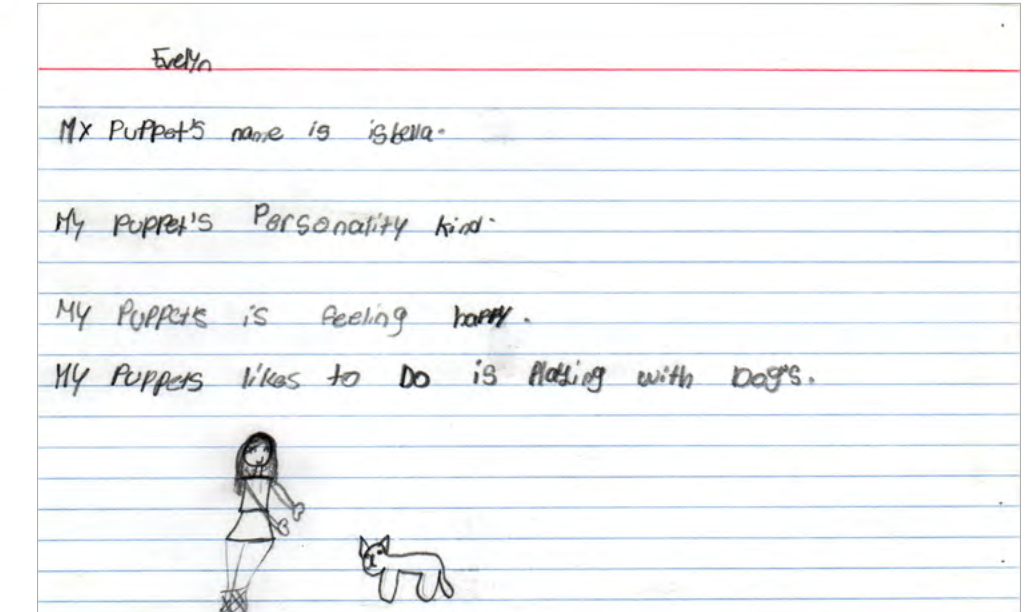 Evelyn
My Puppet's name is isbella.
My puppet's Personality kind.
My Puppets is feeling happy.
My Puppets likes to Do is Playing with Dog's.